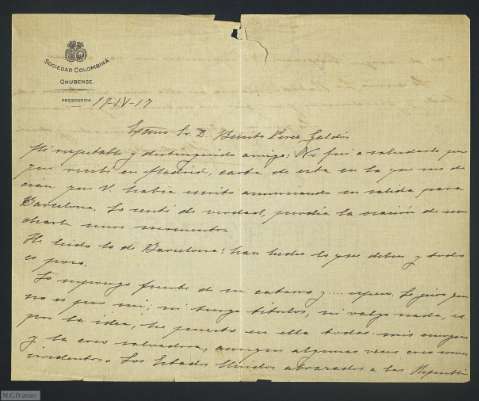 SOCIEDAD COLOMBINA
ONUBENSE
PRESIDENCIA
17-IV-17
Sr D. Benito Perez Galdós
Mi respetable y distinguido amigo: No fui a saludarle por
que recibí en Madrid, carta de esta en la que me de
cian que V. habia escrito anunciando su salida para
Barcelona. Lo sentí de verdad, perdia la ocasión de
charla unos momentos.
He leido lo de Barcelona: han hecho lo que deben y todo
es poco.
Lo supongo fuerte de su catarro y ...
no es para mi; ni tengo titulos, ni valgo nada, es
por la idea, he puesto en ella todas mis energias
y la creo salvadora, aunque algunos
Los Estados Unidos abrazados a las Republi